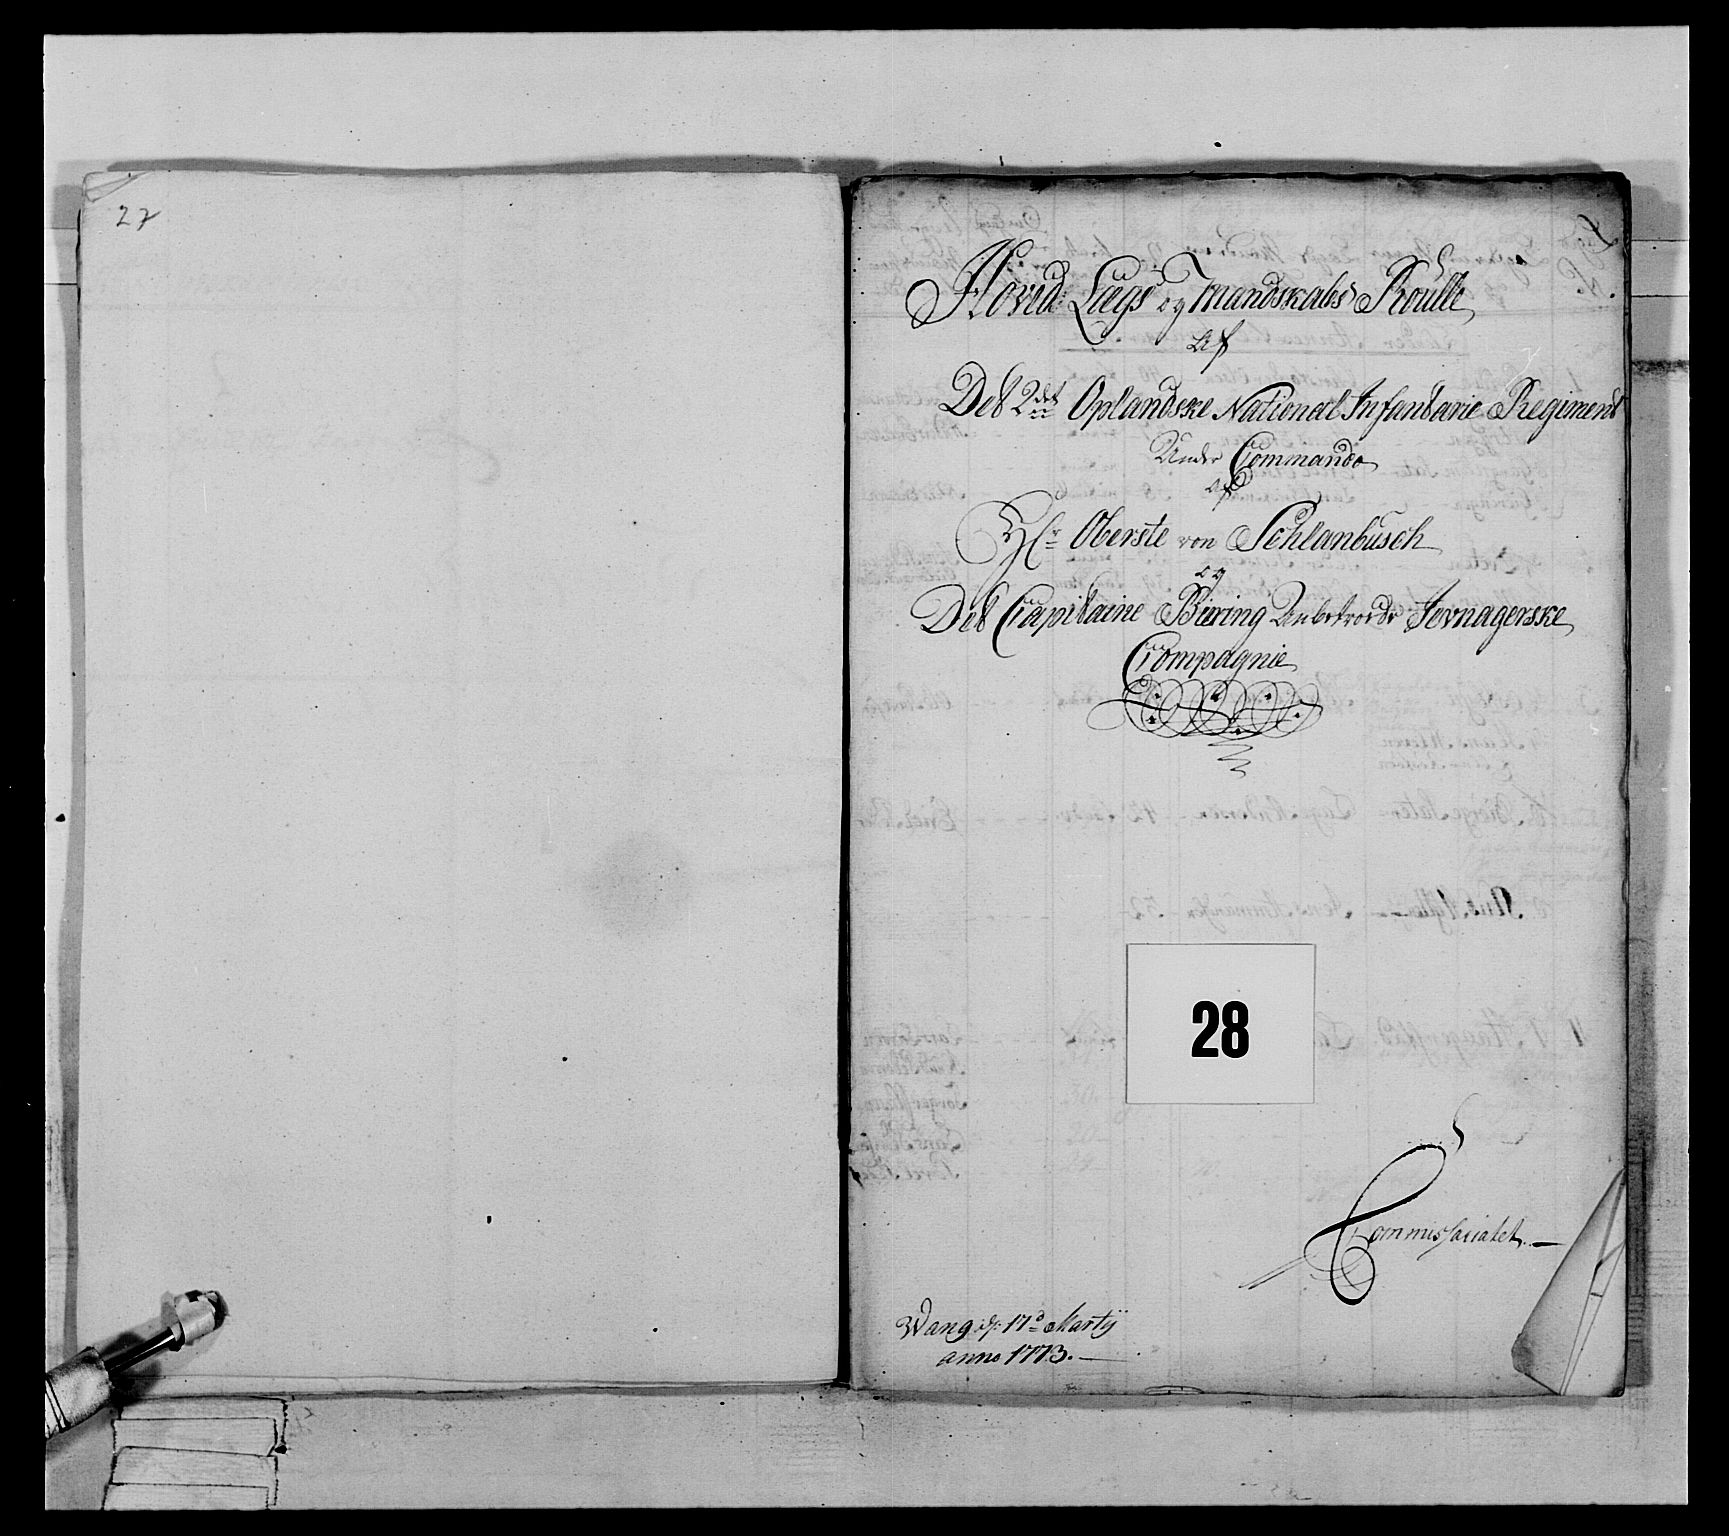 27
Hoved: Lægs og Mandskabs Roulle
Af
Det 2det Oplandske National Infanterie Regiment
Under Commando
af
Hr Oberste von Schlanbusch
og
Det Capitaine Biering Anbetroede Jevnagerske
Compagnie
28
Commissariatet.
Wang d: 17d Martÿ
anno 1773.